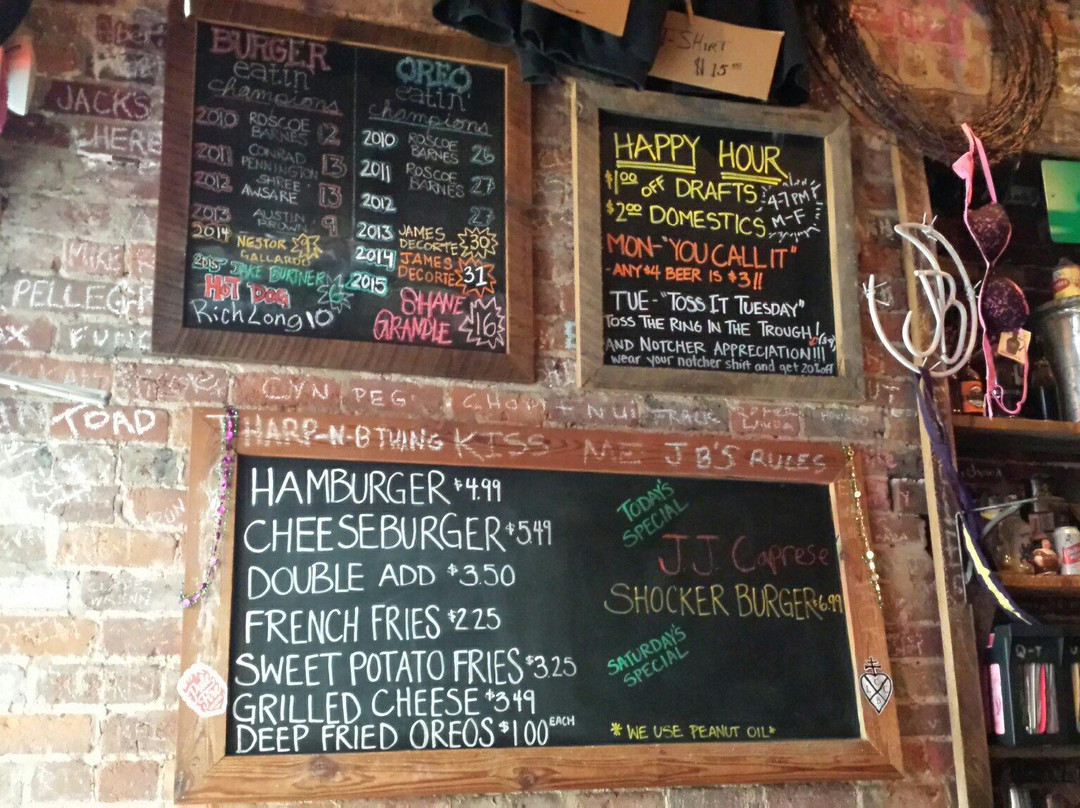 BURGER
eatin'
champions
2010 ROSCOE BARNES 12
2011 CONRAD PENNINGTON 13
2012 SHREE AWSARE 13
2013 AUSTIN BROWN 9
2014 NESTOR GALLARDO 9
2015 JAKE BURTNER
HOT DOG
Rich Long 10
OREO
eatin'
champions
2010 ROSCOE BARNES 26
2011 ROSCOE BARNES 27
2012 27
2013 JAMES DECORTE 30
2014 JAMES DECORTE 31
2015 SHANE GRANDLE 16
T-SHIRT
$15.00
HAPPY HOUR
$1.00 OFF DRAFTS
$2.00 DOMESTICS
4-7PM
M-F
MON-"YOU CALL IT"
-ANY $4 BEER IS $3!!
TUE-"TOSS IT TUESDAY"
TOSS THE RING IN THE TROUGH!
AND NOTCHER APPRECIATION!!!
wear your notcher shirt and get 20% off
JACK'S
HERE
MIKE
TOAD
CYN PEG
THARP-N-BTHING KISS ME JB'S RULES
HAMBURGER $4.99
CHEESEBURGER $5.49
DOUBLE ADD $3.50
FRENCH FRIES $2.25
SWEET POTATO FRIES $3.25
GRILLED CHEESE $3.49
DEEP FRIED OREOS $1.00 EACH
TODAY'S
SPECIAL
J.J. Caprese
SHOCKER BURGER $6.99
SATURDAY'S
SPECIAL
*WE USE PEANUT OIL*
Q-T